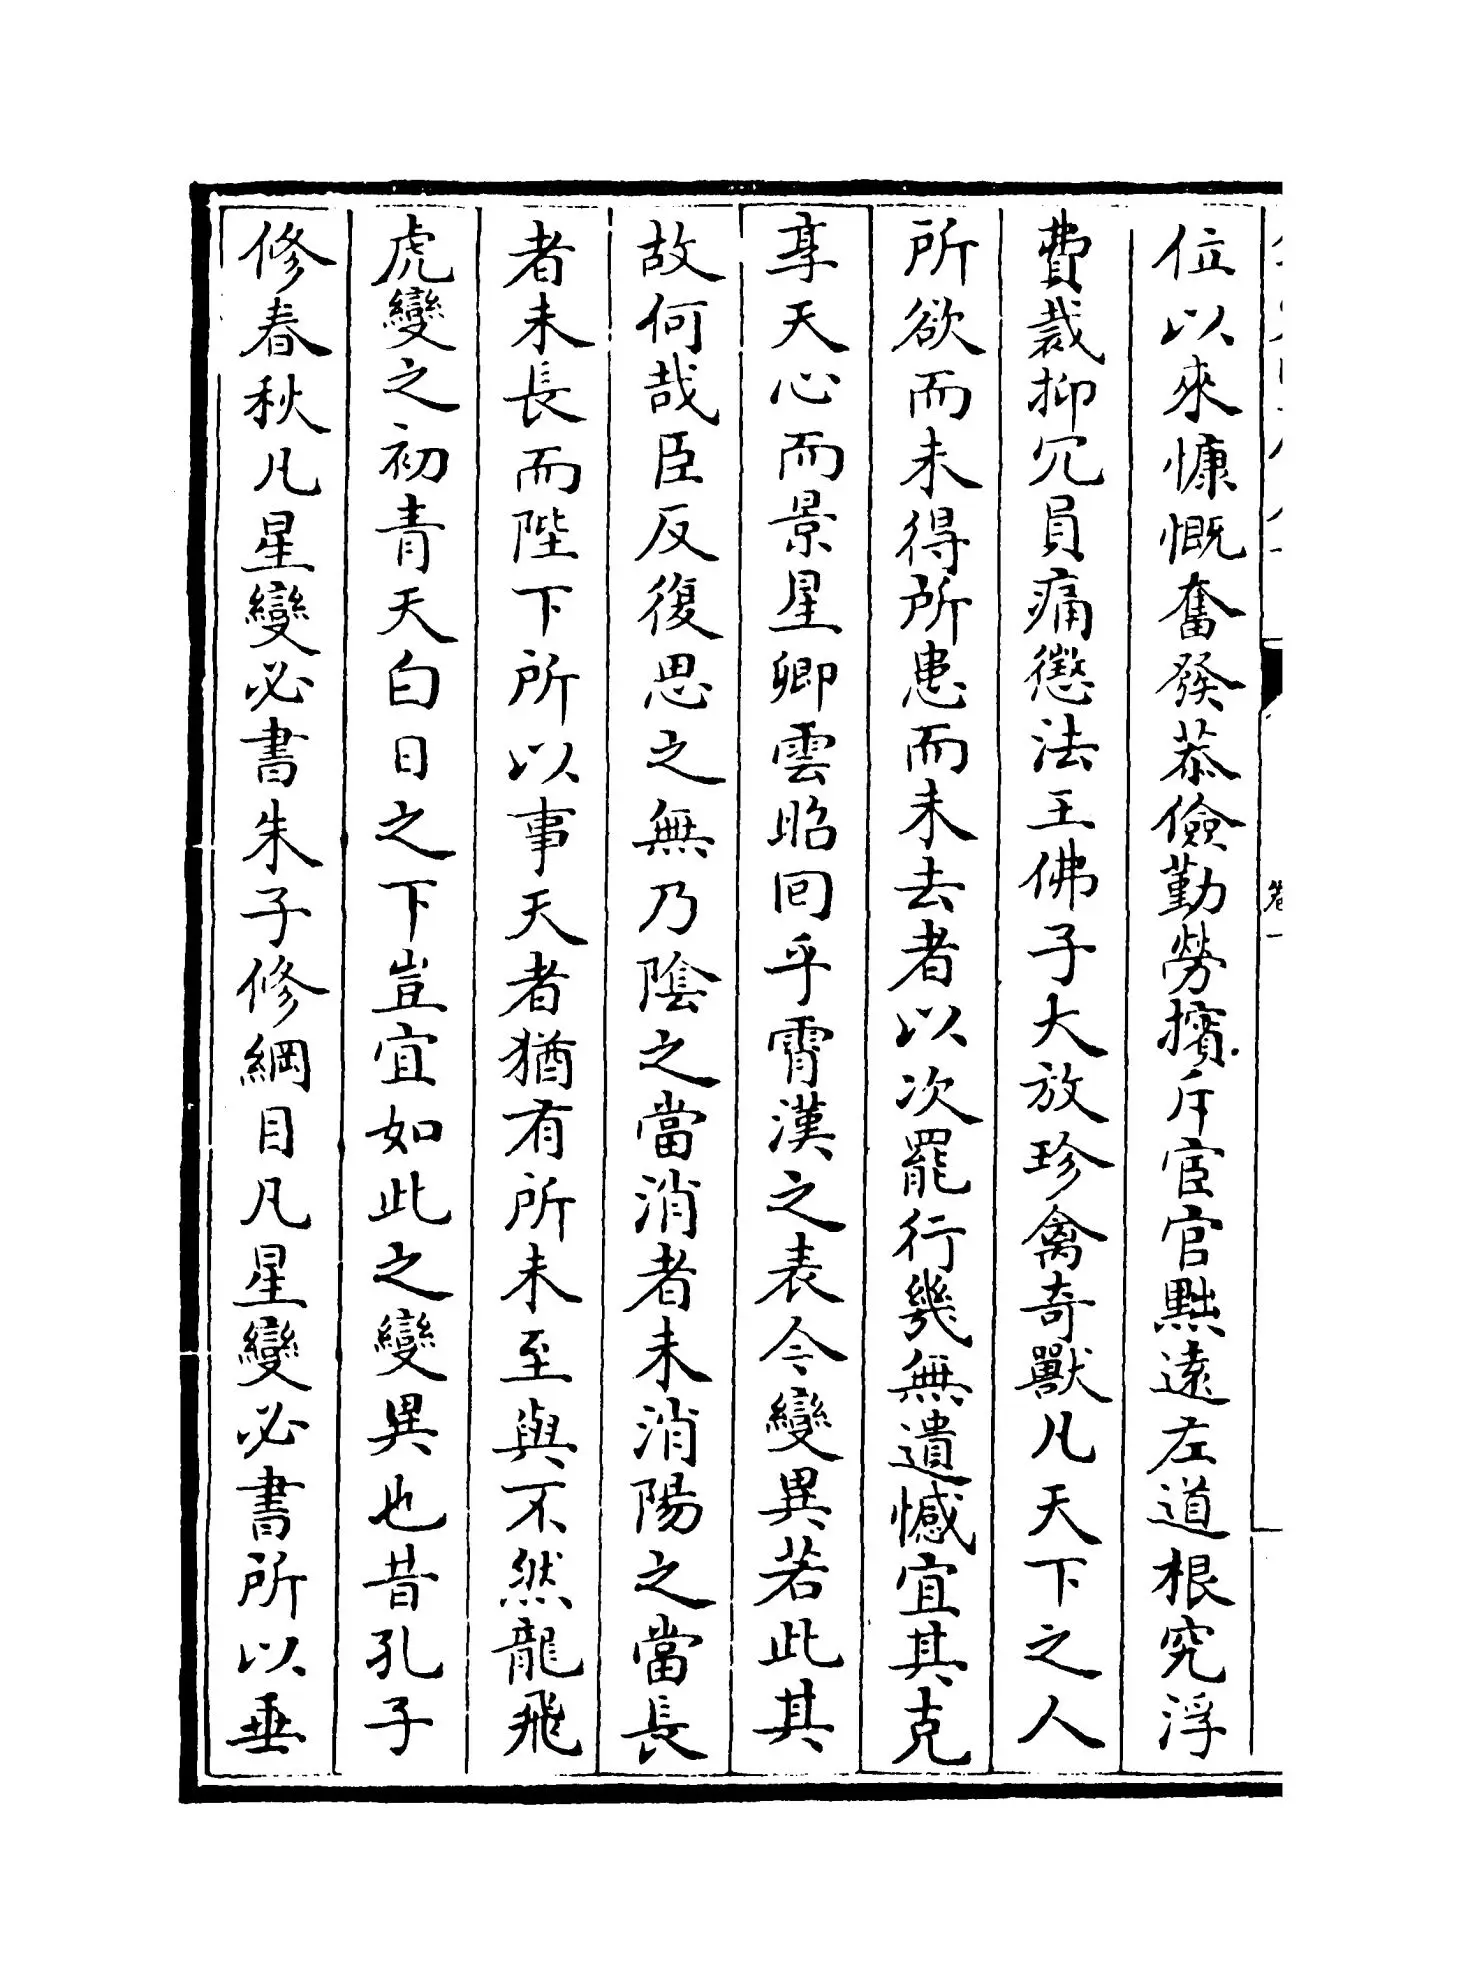 位以來慷慨奮發恭儉勤勞擯斥宦官黜遠左道根究浮
費裁抑冗員痛懲法王佛子大放珍禽奇獸凡天下之人
所欲而未得所患而未去者以次罷行幾無遺憾宜其克
享天心而景星卿雲昭回乎霄漢之表今變異若此其
故何哉臣反復思之無乃陰之當消者未消陽之當長
者未長而陛下所以事天者猶有所未至與不然龍飛
虎變之初青天白日之下豈宜如此之變異也昔孔子
修春秋凡星變必書朱子修綱目凡星變必書所以垂